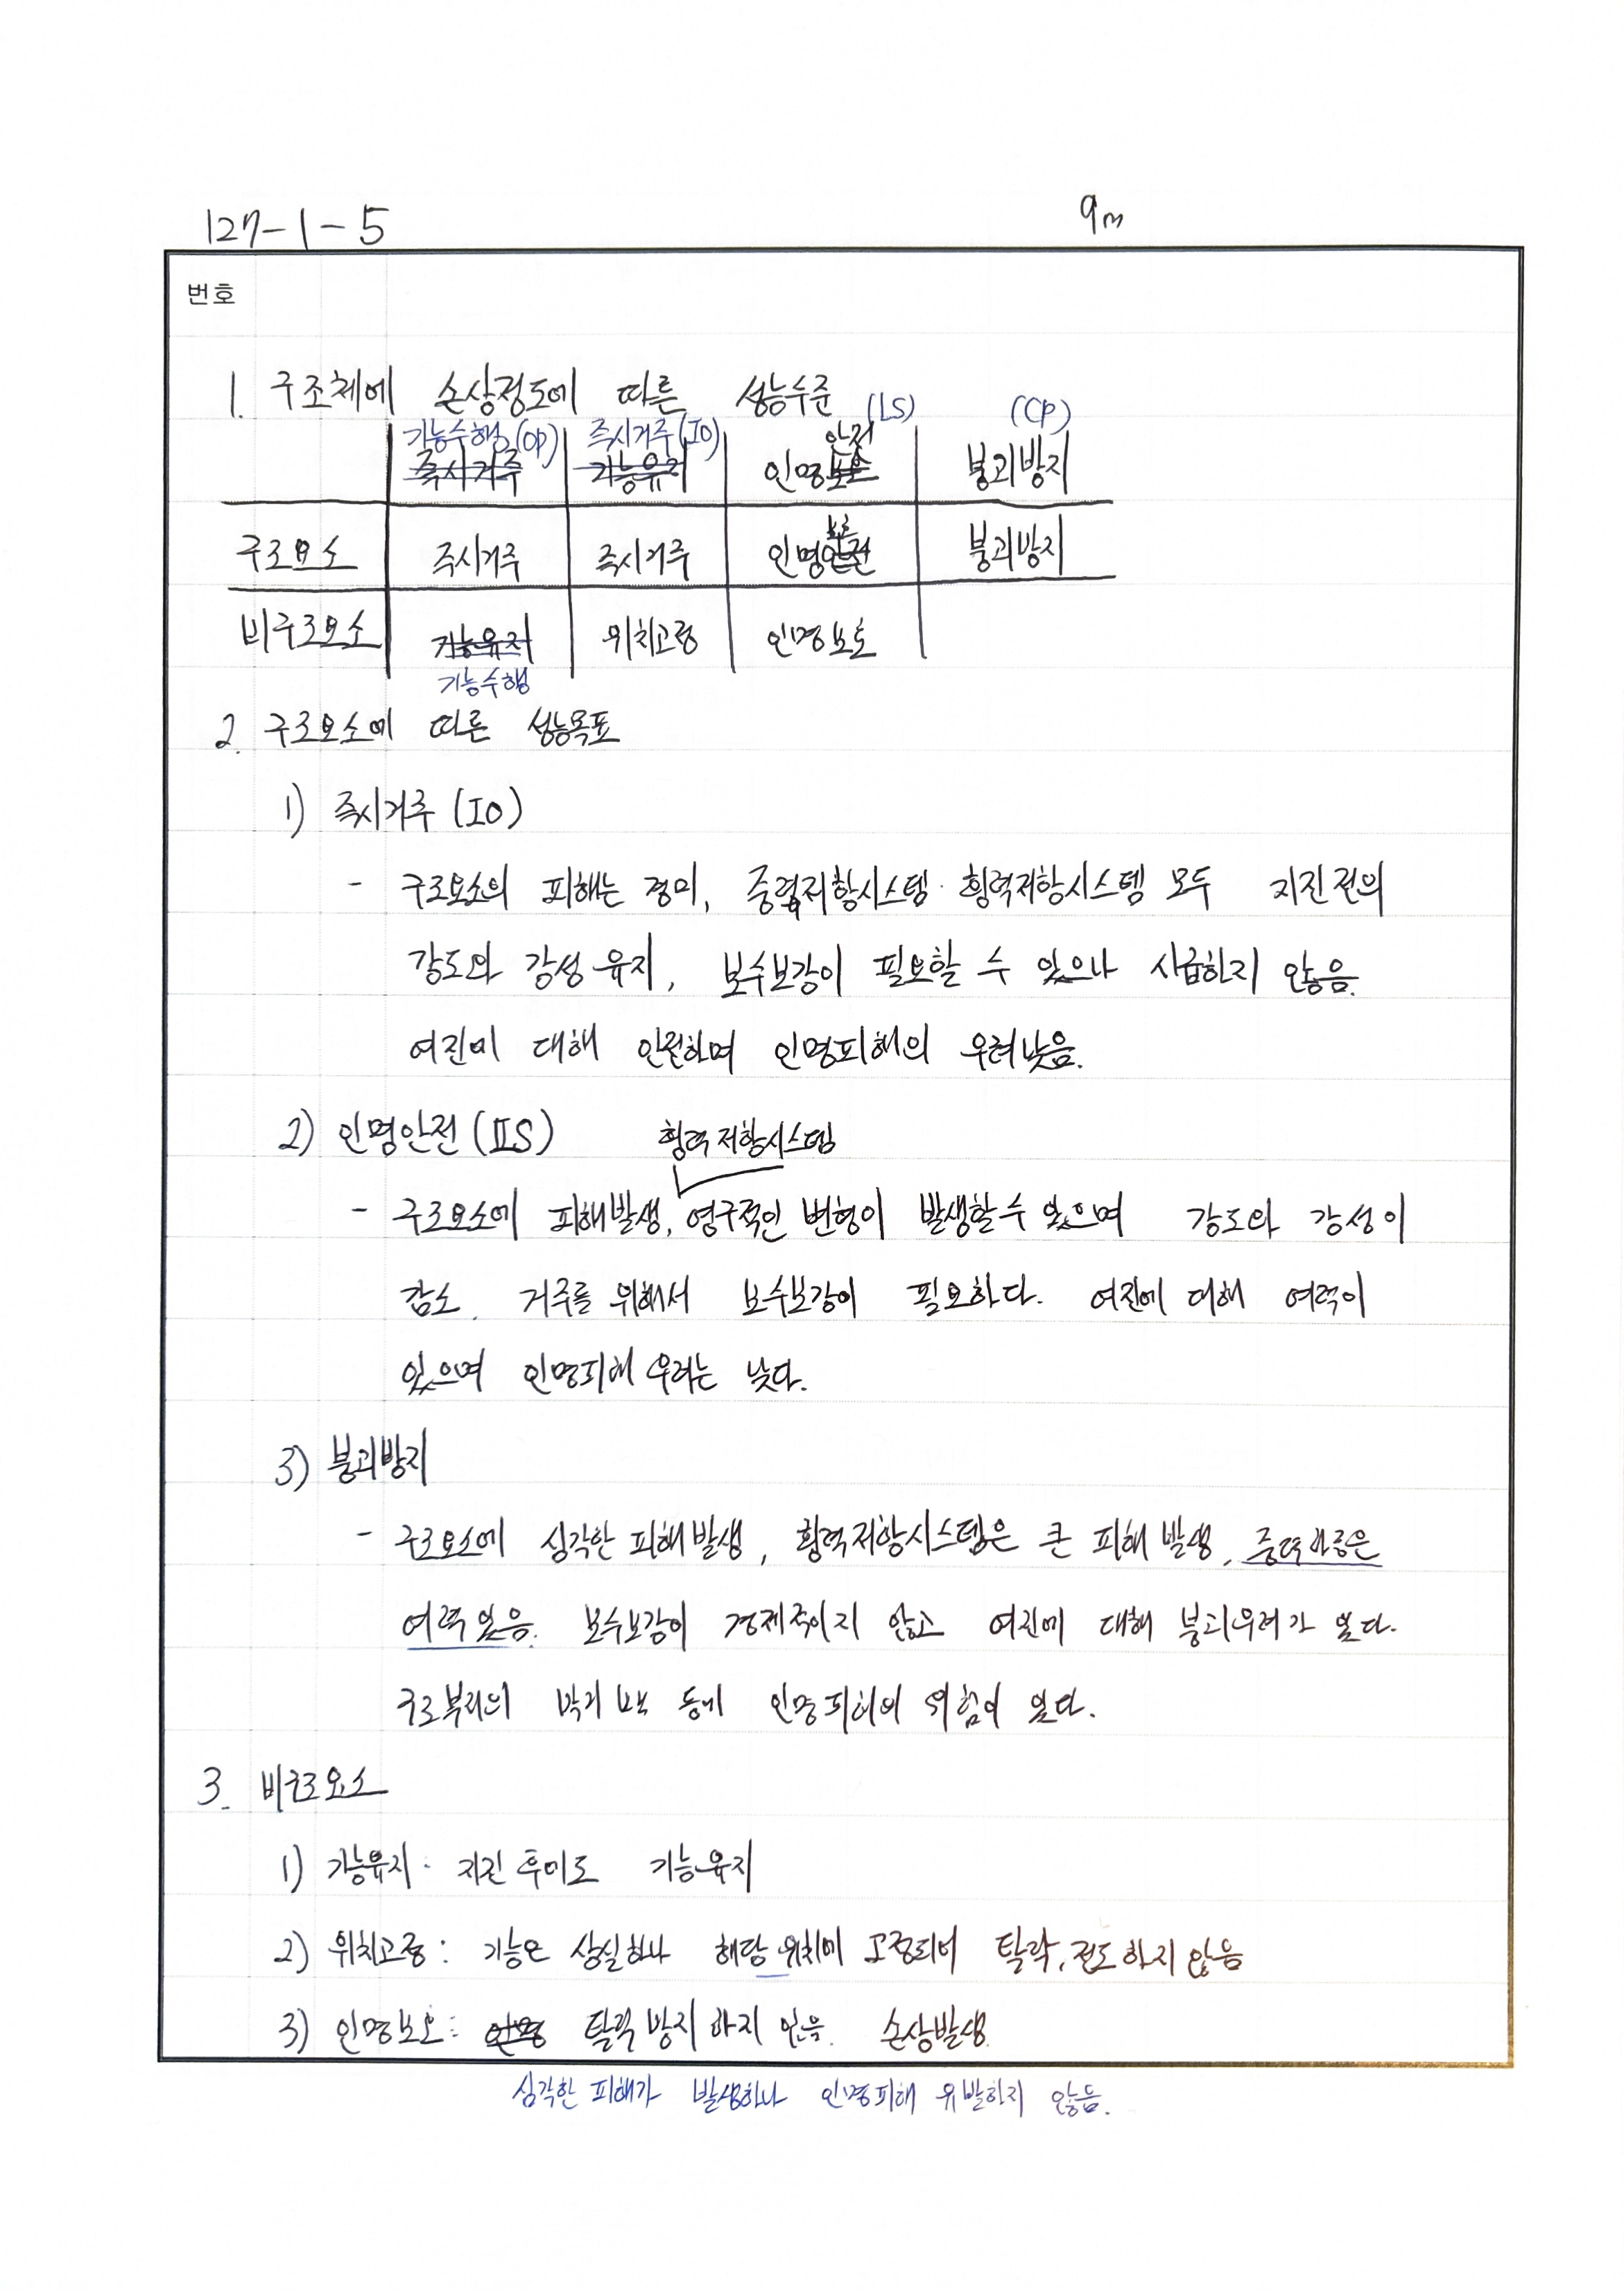 127-1-5
9m
번호
1. 구조체에 손상정도에 따른 성능수준
기능수행(OP) 즉시거주(IO) (LS) (CP)
즉시거주 기능유지 인명안전 붕괴방지
구조요소 즉시거주 즉시거주 인명보호 붕괴방지
비구조요소 기능유지 위치고정 인명보호
기능수행
2. 구조요소에 따른 성능목표
1) 즉시거주 (IO)
- 구조요소의 피해는 경미, 중력저항시스템·횡력저항시스템 모두 지진전의
강도와 강성 유지, 보수보강이 필요할 수 있으나 시급하지 않음.
여진에 대해 안전하며 인명피해의 우려낮음.
2) 인명안전 (IIS) 횡력저항시스템
- 구조요소에 피해발생, 영구적인 변형이 발생할수 있으며 강도와 강성이
감소. 거주를 위해서 보수보강이 필요하다. 여진에 대해 여력이
있으며 인명피해 우려는 낮다.
3) 붕괴방지
- 구조요소에 심각한 피해발생, 횡력저항시스템은 큰 피해발생, 중력하중은
여력있음. 보수보강이 경제적이지 않고 여진에 대해 붕괴우려가 있다.
구조부재의 박리 등에 인명피해의 위험이 있다.
3. 비구조요소
1) 기능유지 · 지진 후에도 기능유지
2) 위치고정 : 기능은 상실하나 해당 위치에 고정되어 탈락, 전도 하지 않음
3) 인명보호 : 인명 탈락 방지 하지 않음. 손상발생.
심각한 피해가 발생하나 인명피해 유발하지 않음.